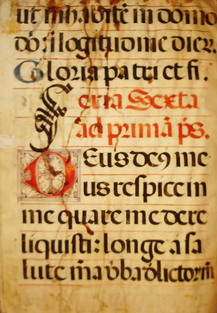 ut inhabitē in domo
dn̄i i lōgitudinē dier.
Gloria patri et fi.
Feria Sexta
ad primā p̄s.
Deus de9 me
us respice in
me quare me dere
liquisti: longe a sa
lute m̄a v̄ba dlictorm̄